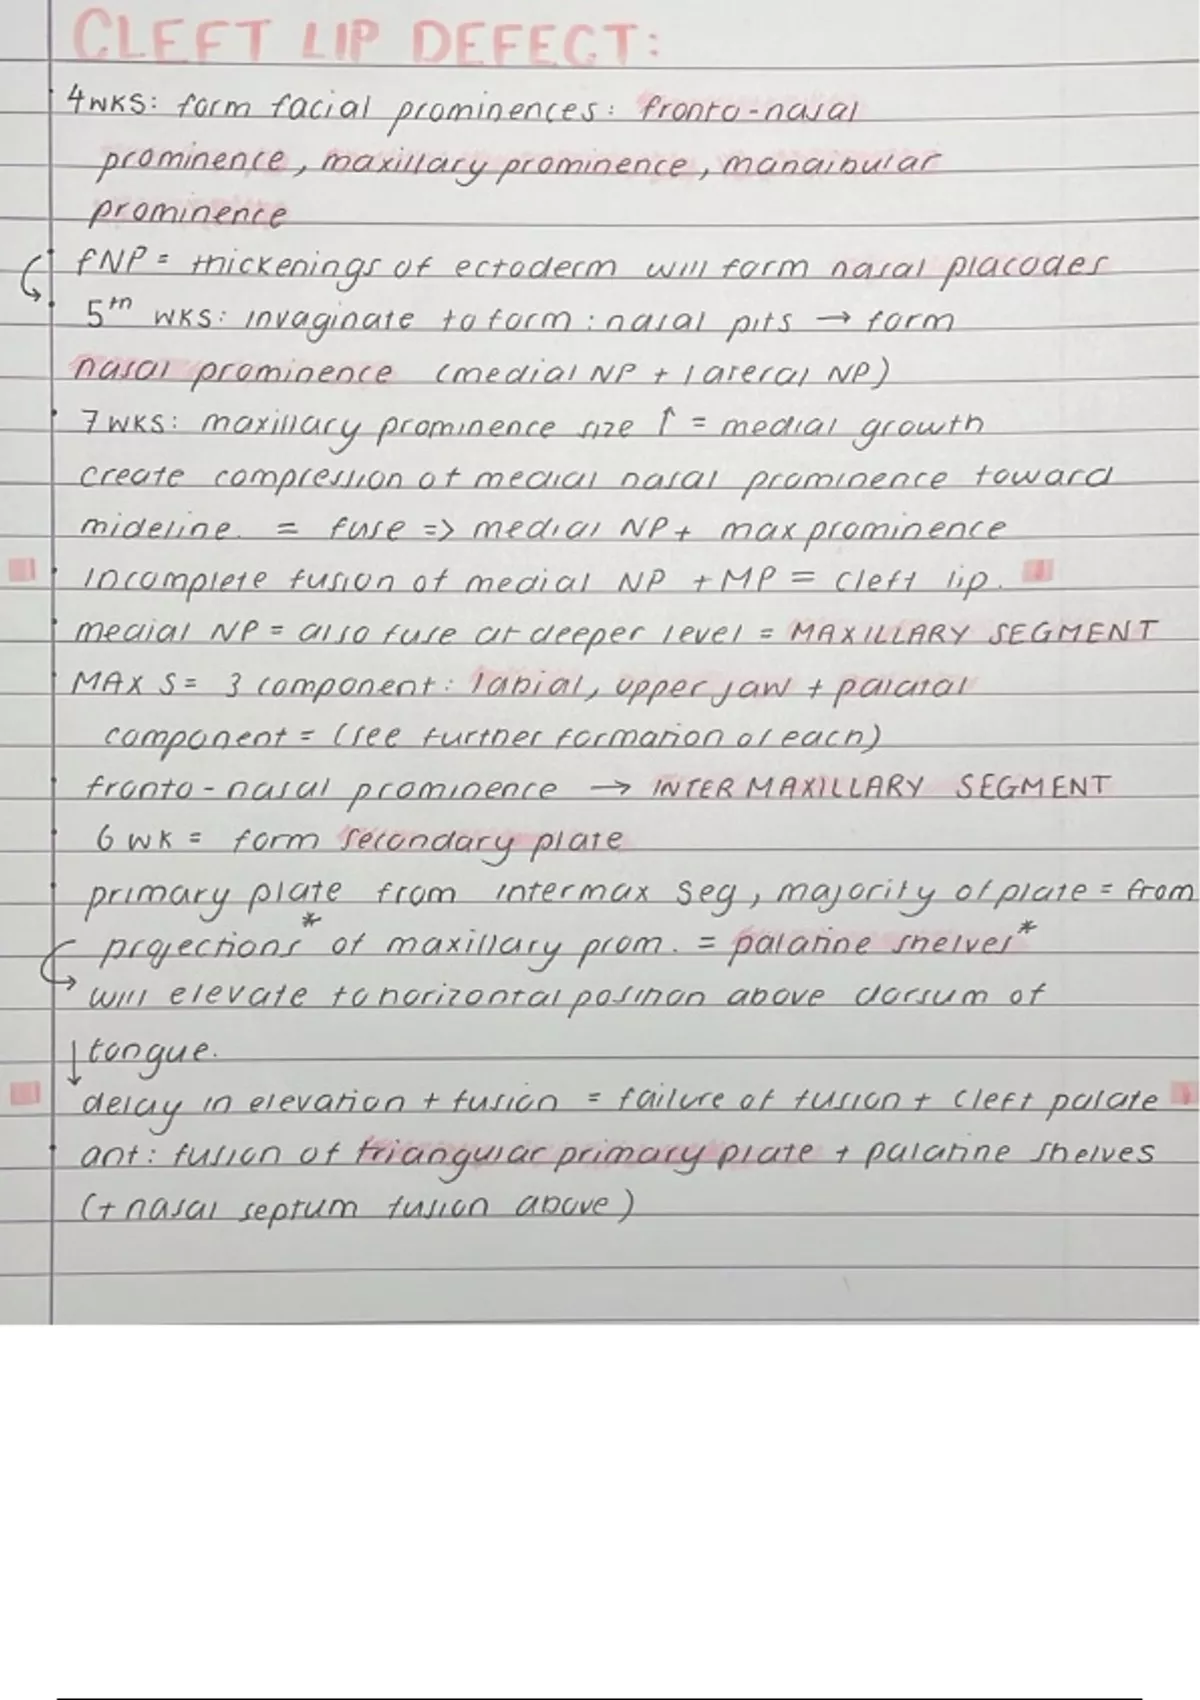 CLEFT LIP DEFECT:
4WKS: form facial prominences: fronto-nasal
prominence, maxillary prominence, mandibular
prominence
FNP = thickenings of ectoderm will form nasal placodes
5th WKS: invaginate to form: nasal pits → form
nasal prominence (medial NP + lateral NP)
7WKS: maxillary prominence size ↑ = medial growth
create compression of medial nasal prominence toward
mideline. = fuse => medial NP + max prominence
! Incomplete fusion of medial NP + MP = cleft lip. !
medial NP = also fuse at deeper level = MAXILLARY SEGMENT
MAX S = 3 component: labial, upper jaw + palatal
component = (see further formation of each)
fronto-nasal prominence → INTERMAXILLARY SEGMENT
6 WK = form secondary plate
primary plate from intermax seg, majority of plate = from
projections* of maxillary prom. = palatine shelves*
will elevate to horizontal position above dorsum of
tongue.
! delay in elevation + fusion = failure of fusion + cleft palate !
ant: fusion of triangular primary plate + palatine shelves
(+ nasal septum fusion above)